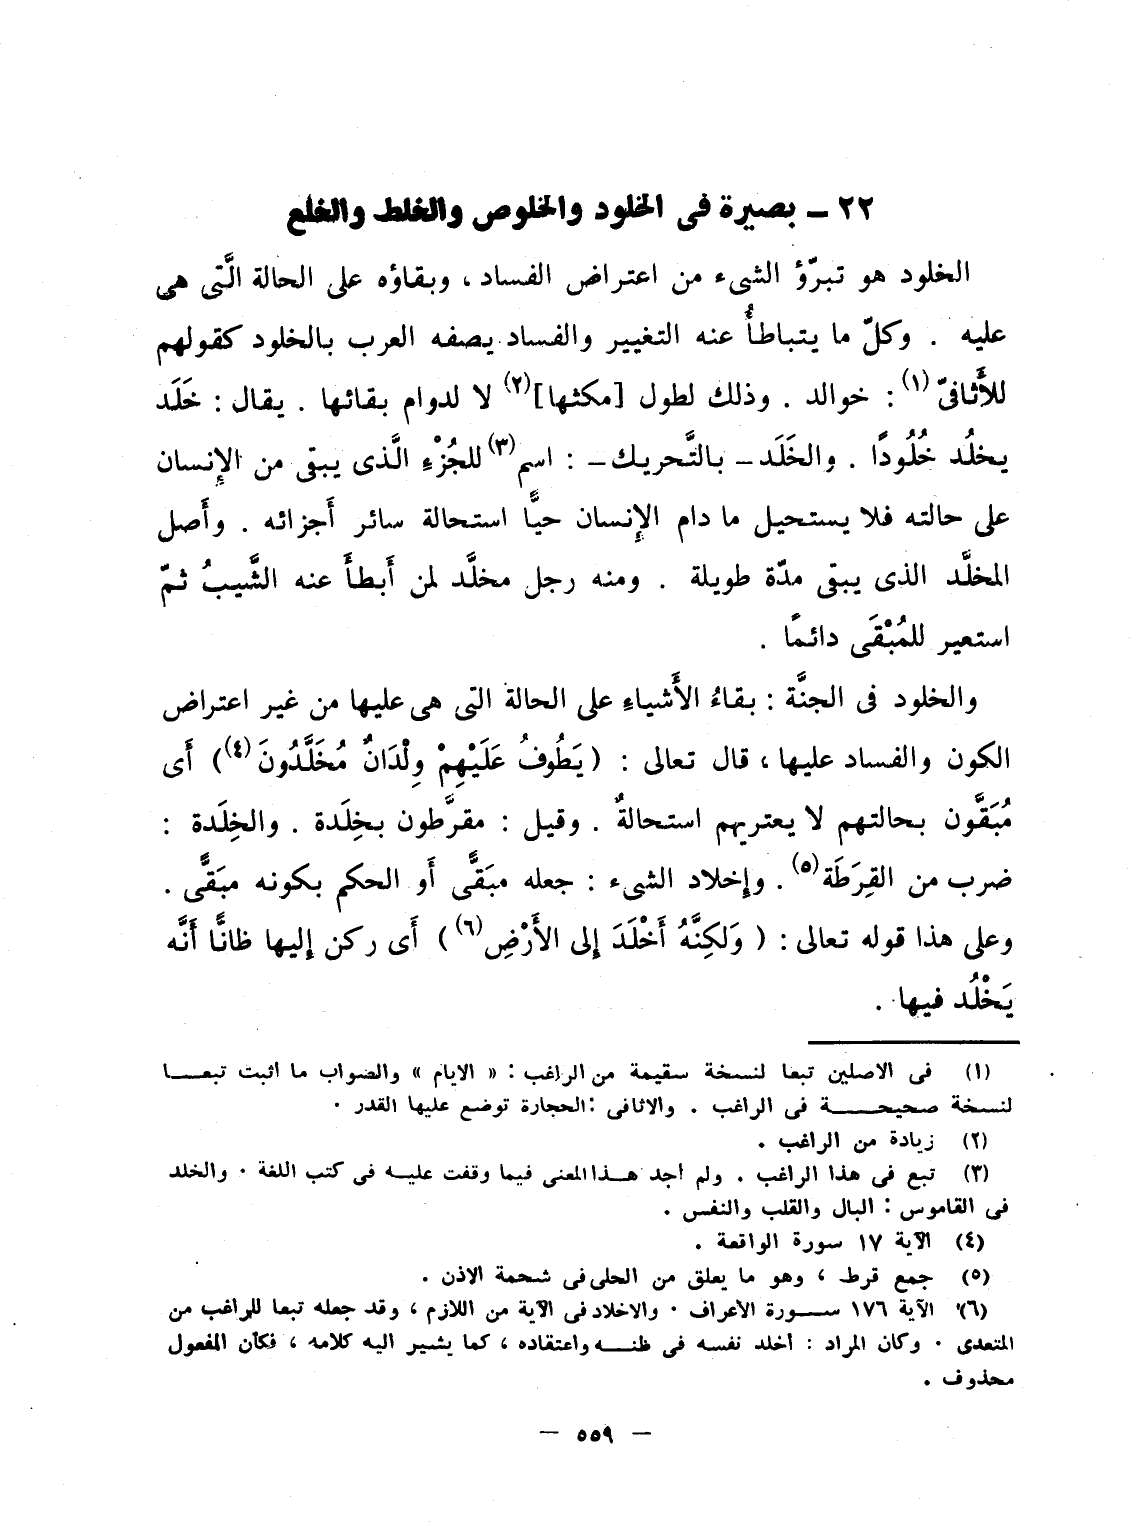 ٢٢ ـ بصيرة فى الخلود والخلوص والخلط والخلع
الخلود هو تبرّؤ الشىء من اعتراض الفساد ، وبقاؤه على الحالة الَّتى هى
عليه . وكلّ ما يتباطأُ عنه التغيير والفساد يصفه العرب بالخلود كقولهم
للأَثافىّ (١) : خوالد . وذلك لطول [مكثها](٢) لا لدوام بقائها . يقال : خَلَد
يخلُد خُلُودًا . والخَلَد ـ بالتَّحريك ـ : اسم(٣) للجُزْءِ الَّذى يبقى من الإِنسان
على حالته فلا يستحيل ما دام الإِنسان حيًّا استحالة سائر أَجزائه . وأَصل
المخلَّد الذى يبقى مدّة طويلة . ومنه رجل مخلَّد لمن أَبطأَ عنه الشَّيبُ ثمّ
استعير للمُبْقَى دائمًا .
والخلود فى الجنَّة : بقاءُ الأَشياءِ على الحالة التى هى عليها من غير اعتراض
الكون والفساد عليها ، قال تعالى : ( يَطُوفُ عَلَيْهِمْ وِلْدَانٌ مُخَلَّدُونَ (٤)) أَى
مُبَقَّون بحالتهم لا يعتريهم استحالةٌ . وقيل : مقرَّطون بخِلَدة . والخِلَدة :
ضرب من القِرَطَة (٥) . وإخلاد الشىء : جعله مبَقًّى أَو الحكم بكونه مبَقًّى .
وعلى هذا قوله تعالى : ( وَلكِنَّهُ أَخْلَدَ إِلى الأَرْضِ (٦) ) أَى ركن إليها ظانًّا أَنَّه
يَخْلُد فيها .
(١) فى الاصلين تبعا لنسخة سقيمة من الراغب : « الايام » والصواب ما اثبت تبعـــا
لنسخة صحيحـــة فى الراغب . والاثافى : الحجارة توضع عليها القدر .
(٢) زيادة من الراغب .
(٣) تبع فى هذا الراغب . ولم أجد هـذا المعنى فيما وقفت عليـه فى كتب اللغة . والخلد
فى القاموس : البال والقلب والنفس .
(٤) الآية ١٧ سورة الواقعة .
(٥) جمع قرط ، وهو ما يعلق من الحلى فى شحمة الاذن .
(٦) الآية ١٧٦ ســورة الأعراف . والاخلاد فى الآية من اللازم ، وقد جعله تبعا للراغب من
المتعدى . وكان المراد : أخلد نفسه فى ظنـــه واعتقاده ، كما يشير اليه كلامه ، فكأن المفعول
محذوف .
— ٥٥٩ —